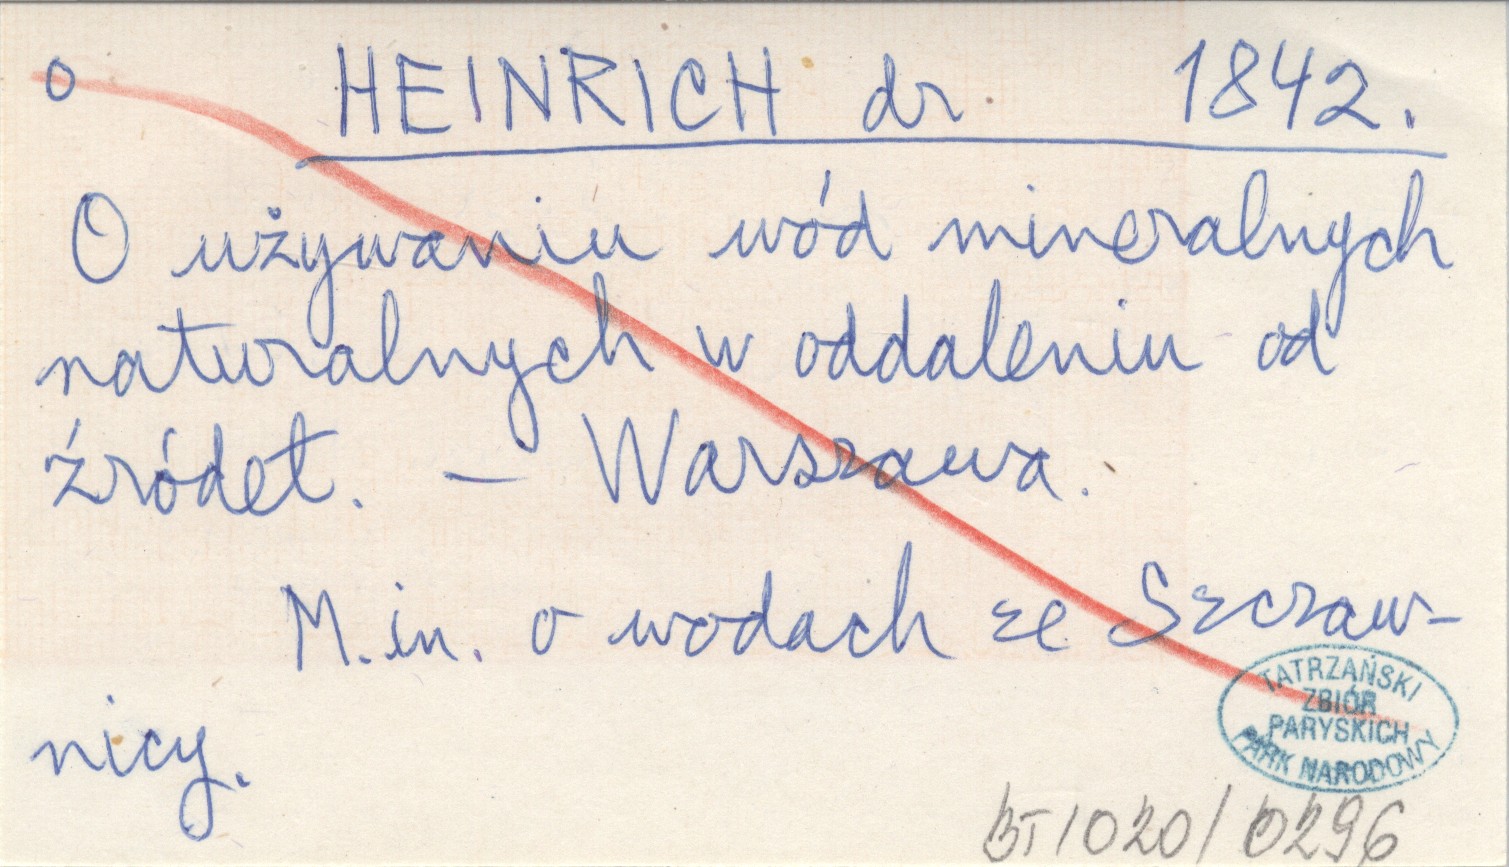 o HEINRICH dr 1842.
O używaniu wód mineralnych
naturalnych w oddaleniu od
źródeł. – Warszawa.
M.in. o wodach ze Szczaw-
nicy.
TATRZAŃSKI
ZBIÓR
PARYSKICH
PARK NARODOWY
BT/020/0296